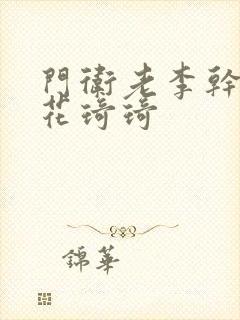 門衛老李幹
花琦琦
錦華